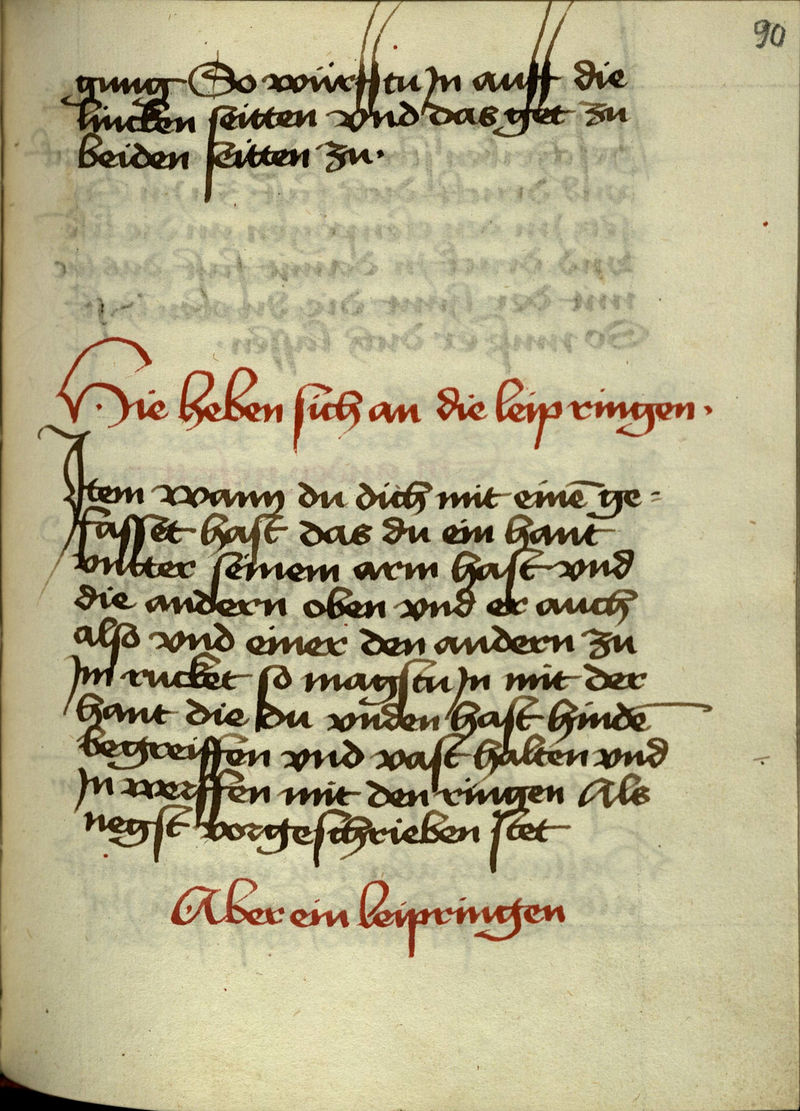 90
gung So würffstu Jn auff die
lincken seitten vnd das get zu
beiden seitten zu·
Hie heben sich an die leip ringen·
Jtem wann du dich mit einē ge=
fasset hast das du ein hant
vntter seinem arm hast vnd
die andern oben vnd er auch
also vnd einer den andern zu
Jm rucket so magstu Jn mit der
hant die du vnden hast hindē
begreiffen vnd vast halten vnd
Jn werffen mit den ringen Als
negst vorgeschrieben stet
Aber ein leipringen